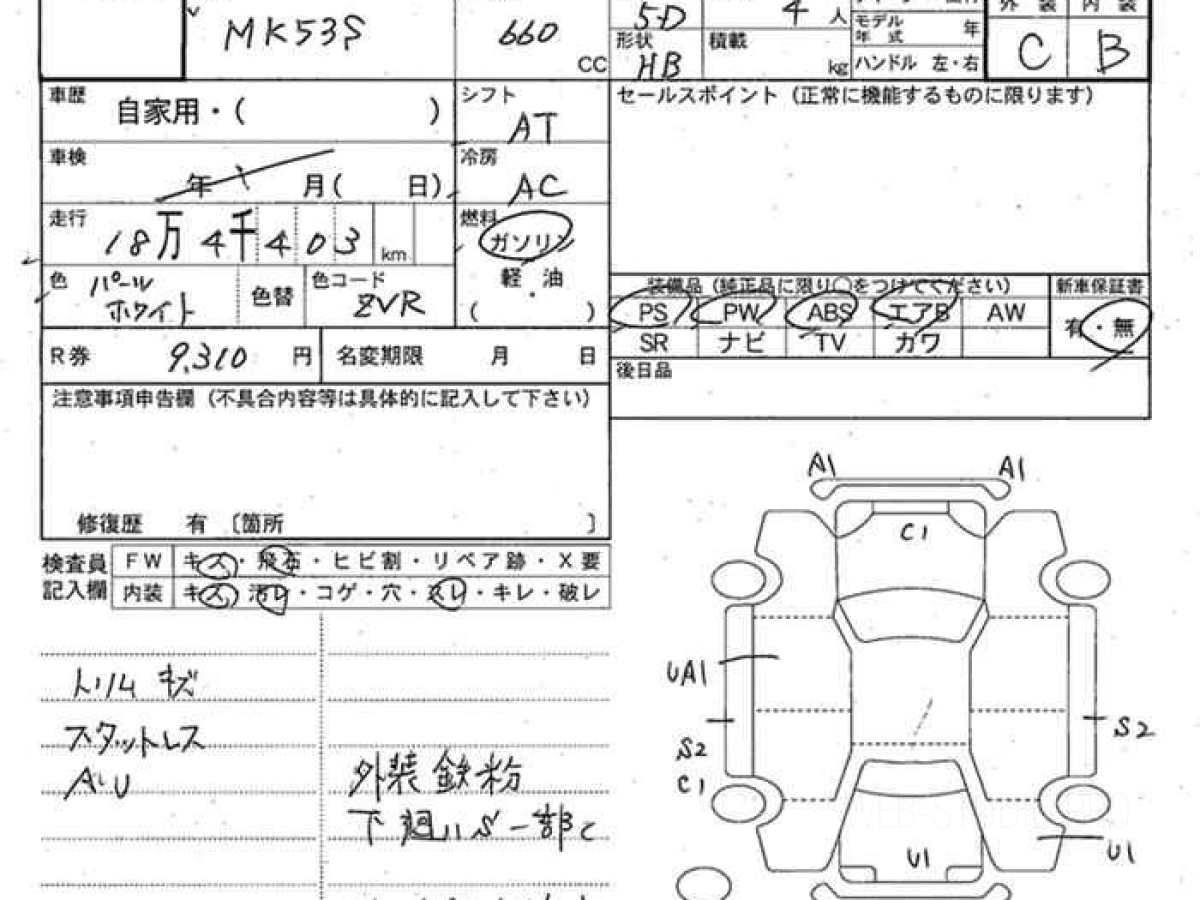 MK53S
660
CC
5-D
4 人
モデル
年式 年
外装 内装
C B
形状
HB
積載
kg
ハンドル 左・右
車歴
自家用・( )
シフト
AT
セールスポイント（正常に機能するものに限ります）
車検
年 月( 日)
冷房
AC
走行
18万4千403 km
燃料
ガソリン
軽・油
( )
色
パール
ホワイト
色替
色コード
ZVR
装備品（純正品に限り○をつけてください） 新車保証書
PS PW ABS エアB AW
有・無
SR ナビ TV カワ
R券 9,310 円 名変期限 月 日
後日品
注意事項申告欄（不具合内容等は具体的に記入して下さい）
修復歴 有 〔箇所 〕
検査員
記入欄
FW キズ・飛石・ヒビ割・リペア跡・X要
内装 キズ・汚レ・コゲ・穴・スレ・キレ・破レ
トリム キズ
スタットレス
外装 鉄粉
A1 A1
C1
UA1
S2
C1
S2
U1
U1